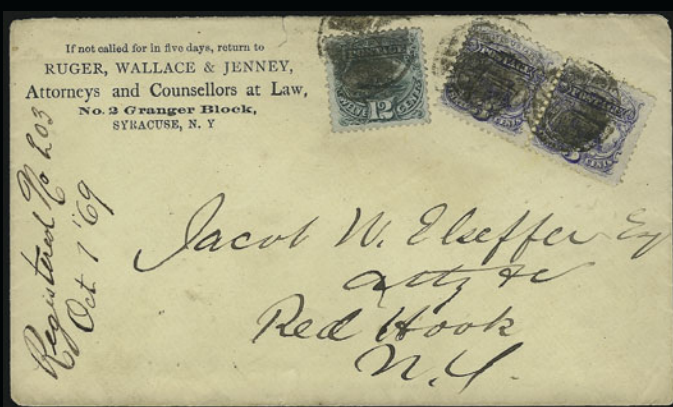 If not called for in five days, return to
RUGER, WALLACE & JENNEY,
Attorneys and Counsellors at Law,
No. 2 Granger Block,
SYRACUSE, N. Y
Registered No 203
Oct 1 '69
POSTAGE
12
CENTS
POSTAGE
POSTAGE
Jacob W. Elseffer Esq
Atty &c
Red Hook
N.Y.